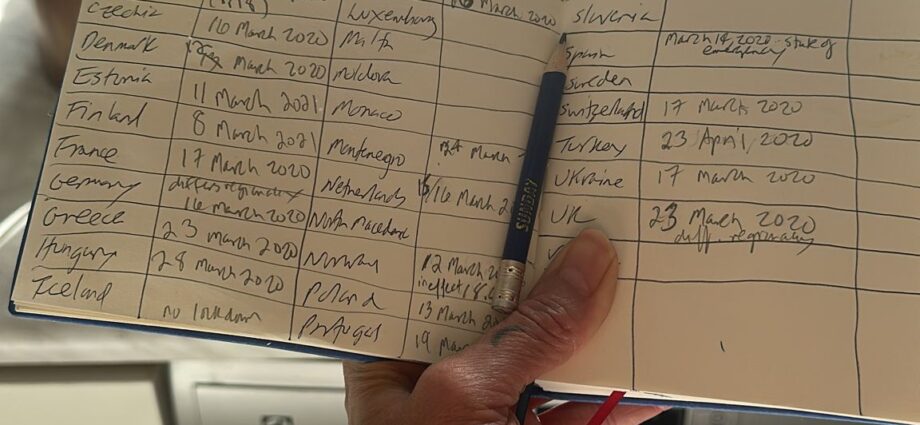 Czechia
16 March 2020
Luxemburg
16 March 2020
Denmark
March 2020
Malta
Estonia
11 March 2021
Moldova
Finland
8 March 2021
Monaco
France
17 March 2020
Montenegro
March
Germany
differs regionally
Netherlands
15/16 March
Greece
16 March 2020
North Macedonia
Hungary
23 March 2020
Norway
12 March
in effect 18.
Iceland
28 March 2020
Poland
13 March
no lokdown
Portugal
19 Mar
Slovenia
Spain
March 14, 2020 - state of
emergency
Sweden
Switzerland
17 March 2020
Turkey
23 April, 2020
Ukraine
17 March 2020
UK
23 March 2020
diff. regionally
SUNDAY